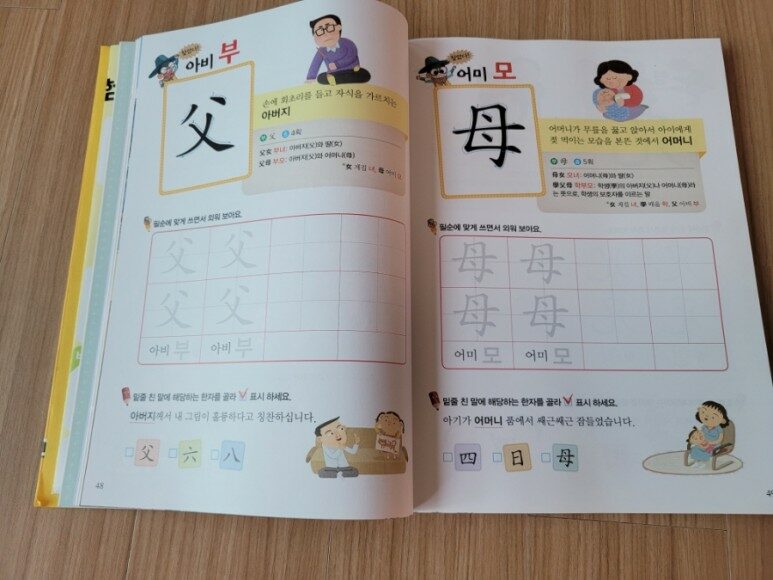 찾았다!
아비 부
父
손에 회초리를 들고 자식을 가르치는
아버지
父 4획
父女 부녀: 아버지(父)와 딸(女)
父母 부모: 아버지(父)와 어머니(母)
*女 계집 녀, 母 어미 모
필순에 맞게 쓰면서 외워 보아요.
父 父
父 父
아비 부 아비 부
밑줄 친 말에 해당하는 한자를 골라 ✓ 표시 하세요.
아버지께서 내 그림이 훌륭하다고 칭찬하십니다.
父 六 八
48
찾았다!
어미 모
母
어머니가 무릎을 꿇고 앉아서 아이에게
젖 먹이는 모습을 본뜬 것에서 어머니
母 5획
母女 모녀: 어머니(母)와 딸(女)
學父母 학부모: 학생(學)의 아버지(父)나 어머니(母)라
는 뜻으로, 학생의 보호자를 이르는 말
*女 계집 녀, 學 배울 학, 父 아비 부
필순에 맞게 쓰면서 외워 보아요.
母 母
母 母
어미 모 어미 모
밑줄 친 말에 해당하는 한자를 골라 ✓ 표시 하세요.
아기가 어머니 품에서 쌔근쌔근 잠들었습니다.
四 日 母